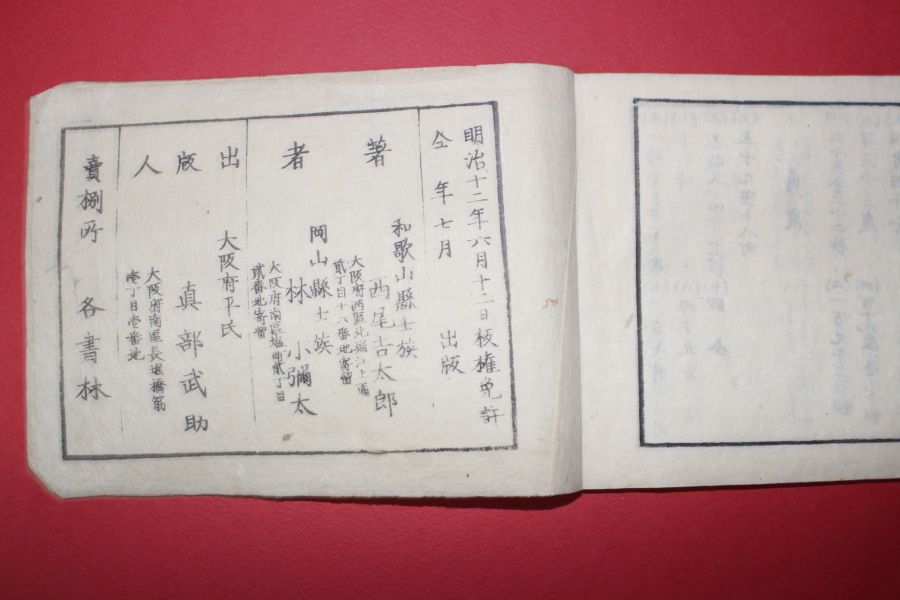 明治十二年六月十二日板權免許
仝年七月 出版
著者
和歌山縣士族
西尾吉太郎
大阪府西區北堀江上通
貳丁目十六番地寄留
岡山縣士族
林小彌太
大阪府南區塩町貳丁目
貳番地寄留
出版人
大阪府平民
真部武助
大阪府南區長堀橋筋
壱丁目壱番地
賣捌所 各書林